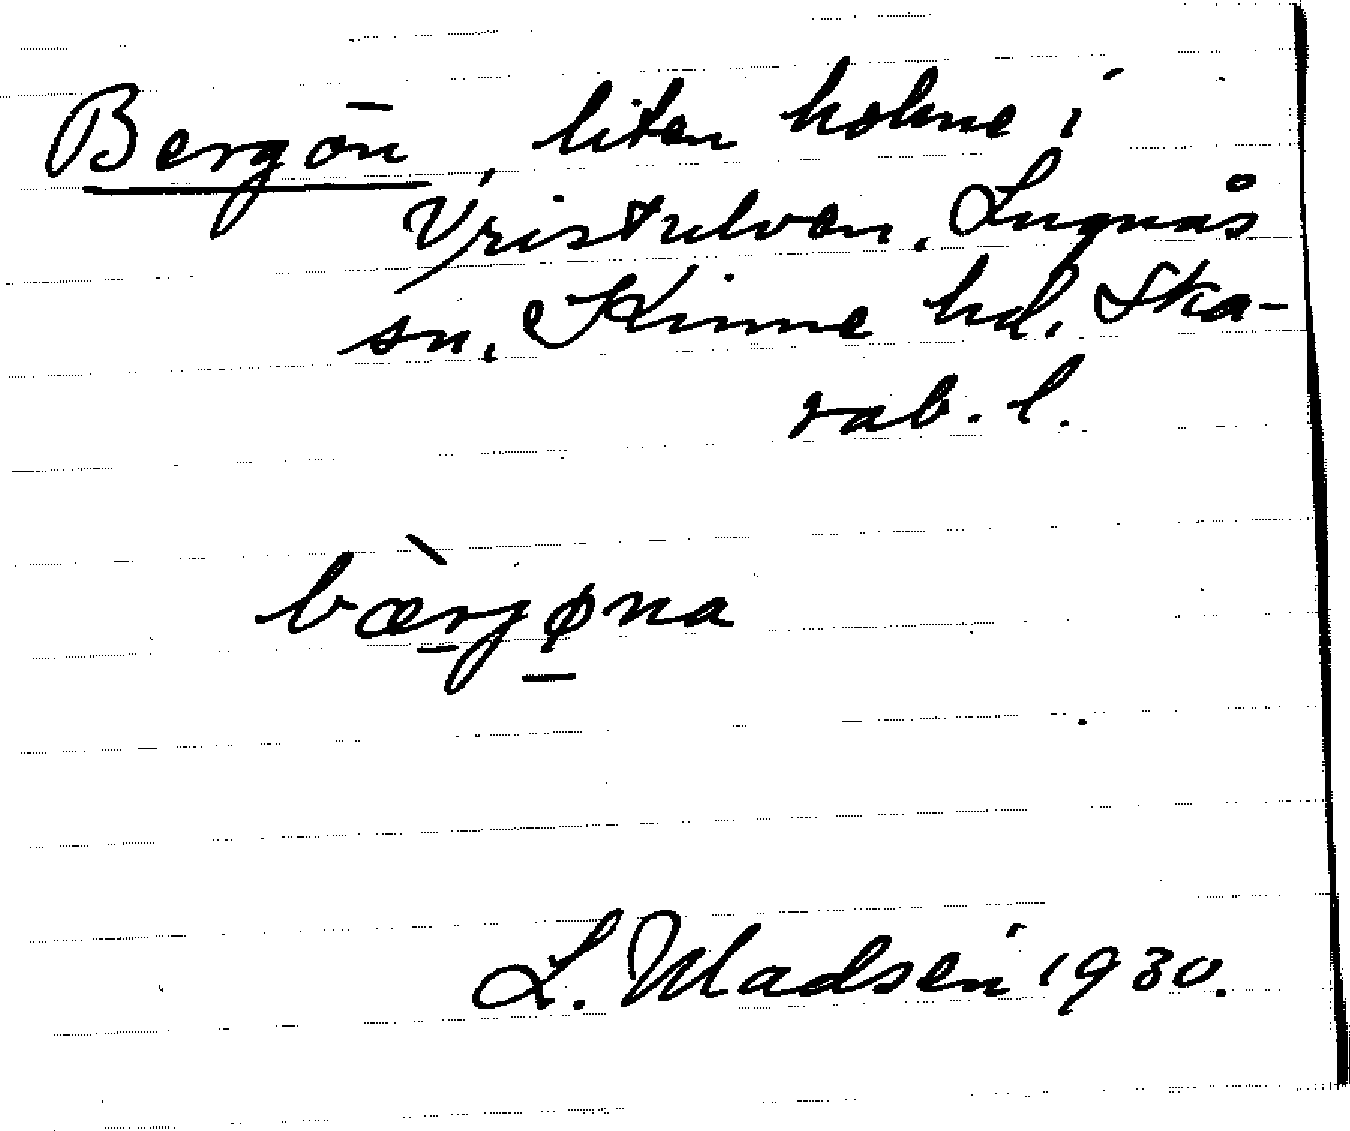 Bergön, liten holme i
Vristulven, Lugnås
sn, Kinne hd, Ska-
rab. l.
bæ̀rjøna
L. Madsen 1930.